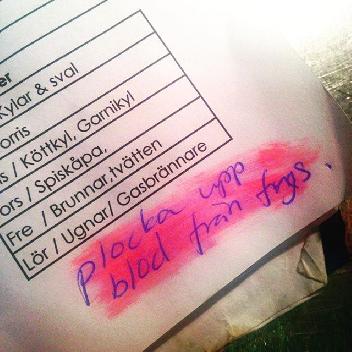 er
Kylar & sval
orris
s / Köttkyl, Garnikyl
ors / Spiskåpa,
Fre / Brunnar, tvätten
Lör / Ugnar/ Gasbrännare
Plocka upp
blod från frys.